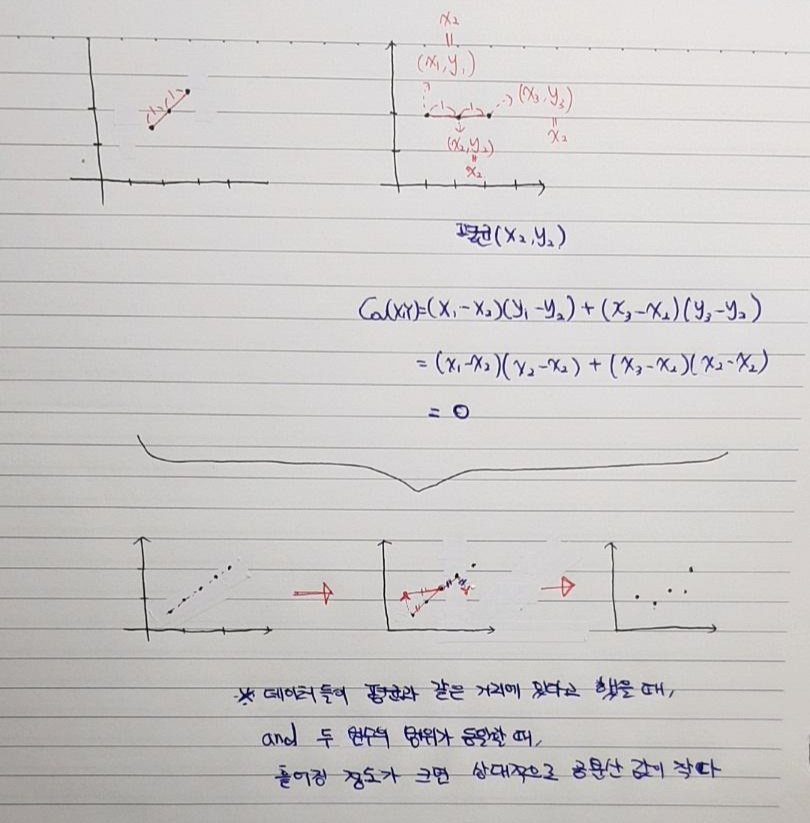 x₂
=
(x₁, y₁)
(x₃, y₃)
=
x₂
(x₂, y₂)
=
x₂
1 1
1 1
평균(x₂, y₂)
Cov(X,Y)=(x₁-x₂)(y₁-y₂)+(x₃-x₂)(y₃-y₂)
=(x₁-x₂)(x₂-x₂)+(x₃-x₂)(x₂-x₂)
= 0
※ 데이터들이 평균과 같은 거리에 있다고 했을 때,
and 두 변수의 범위가 동일할 때,
흩어짐 정도가 크면 상대적으로 공분산 값이 작다